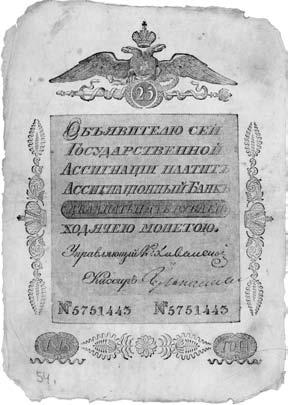 25
Объявителю сей
Государственной
Ассигнации платитъ
Ассигнаціонный Банкъ
двадцать пять рублей
ходячею монетою.
Управляющій
Кассиръ
№5751443 №5751443
54.